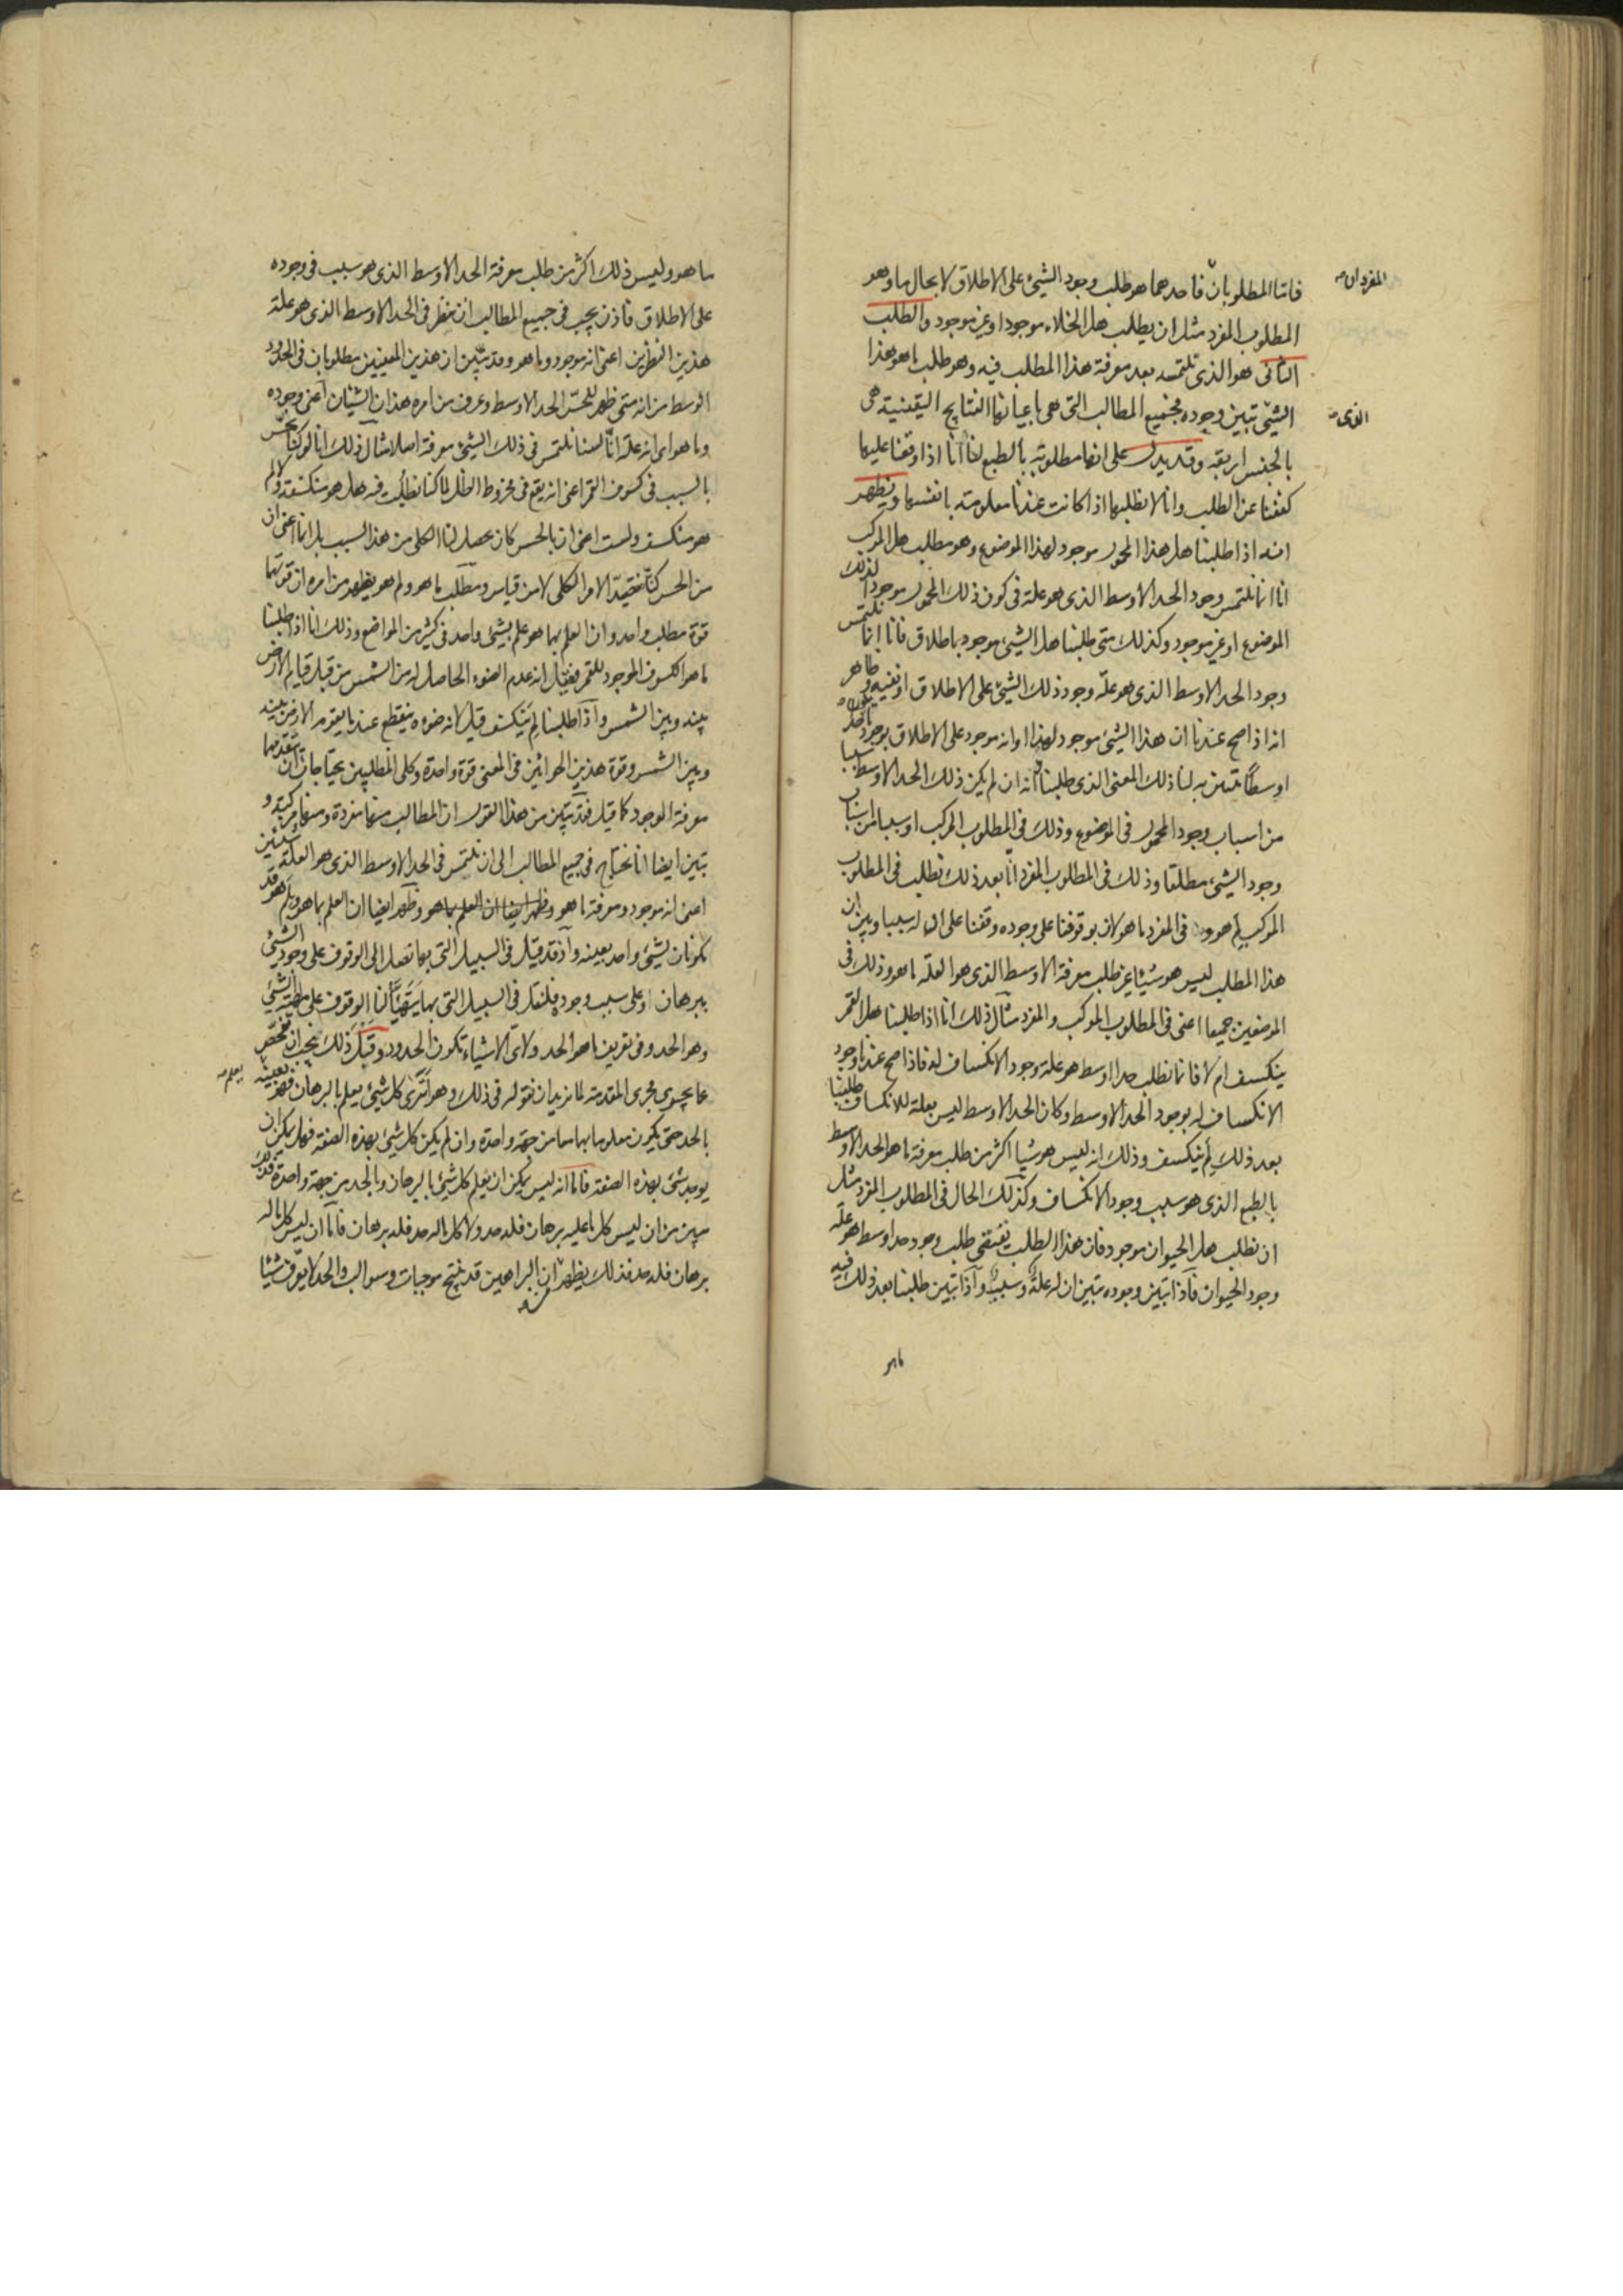 فاما المطلوبان فاحدهما هو طلب وجود الشيئ على الاطلاق لا بحال ما وهو
المفردان
المطلوب المفرد مثل ان يطلب هل الخلاء موجود او غير موجود والطلب
الثانى هو الذى نلتمسه بعد معرفة هذا المطلب فيه وهو طلب ما هو هذا
الشيئ تبين وجوده فجميع المطالب التى هى باعيانها النتايج اليقينية هى
الذى
بالجنس اربعة وقد يدل على انها مطلوبة بالطبع لنا انا اذا وقفنا عليها
كففنا عن الطلب وانا لا نطلبها اذا كانت عندنا معلومة بانفسها ويظهر
انه اذا طلبنا هل هذا المحمول موجود لهذا الموضوع وهو مطلب هل المركب
انا انما نلتمس وجود الحد الاوسط الذى هو علة فى كون ذلك المحمول موجودا لذلك
الموضوع او غير موجود وكذلك متى طلبنا هل الشيئ موجود باطلاق فانا انما نلتمس
وجود الحد الاوسط الذى هو علة وجود ذلك الشيئ على الاطلاق او نفيه وظاهر
انه اذا صح عندنا ان هذا الشيئ موجود لهذا او انه موجود على الاطلاق بوجود
اوسط تبين به لنا ذلك المعنى الذى طلبنا انه ان لم يكن ذلك الحد الاوسط سببا
من اسباب وجود المحمول فى الموضوع وذلك فى المطلوب المركب او سببا من اسباب
وجود الشيئ مطلقا وذلك فى المطلوب المفرد انا بعد ذلك نطلب فى المطلوب
المركب لم هو وفى المفرد ما هو لان بوقوفنا على وجوده وقفنا على ان له سببا وبين ان
هذا المطلب ليس هو شيئا غير طلب معرفة الاوسط الذى هو العلة ما هو وذلك فى
الموضعين جميعا اعنى فى المطلوب المركب والمفرد مثال ذلك انا اذا طلبنا هل القمر
ينكسف ام لا فانما نطلب حدا اوسط هو علة وجود الانكساف له فاذا صح عندنا وجود
الانكساف له بوجود الحد الاوسط وكان الحد الاوسط ليس بعلة للانكساف طلبنا
بعد ذلك لم ينكسف وذلك انه ليس هو شيا اكثر من طلب معرفة ما هو الحد الاوسط
بالطبع الذى هو سبب وجود الانكساف وكذلك الحال فى المطلوب المفرد مثل
ان نطلب هل الحيوان موجود فان هذا الطلب يقتضى طلب وجود حد اوسط هو علة
وجود الحيوان فاذا تبين وجوده تبين ان له علة وسببا واذا تبين طلبنا بعد ذلك فيه
ما هو
ما هو وليس ذلك اكثر من طلب معرفة الحد الاوسط الذى هو سبب فى وجوده
على الاطلاق فاذن يجب فى جميع المطالب ان ننظر فى الحد الاوسط الذى هو علة
هذين النظرين اعنى انه موجود وما هو وقد تبين ان هذين المعنيين مطلوبان فى الحد
الوسط من انه متى ظهر للحس الحد الاوسط وعرف من امره هذان الشيئان اعنى وجوده
وما هو اى انه علة انا لسنا نلتمس فى ذلك الشيئ معرفة اصلا مثال ذلك انا لو كنا نحس
بالسبب فى كسوف القمر اعنى انه يقع فى مخروط الظل لما كنا نطلب فيه هل هو منكسف ولا لم
هو منكسف ولست اعنى ان بالحس كان يحصل لنا الكلى من هذا السبب بل انما اعنى ان
من الحس كنا نصيد الامر الكلى لا من قياس ومطلب ما هو ولم هو يظهر من امره ان قوتهما
قوة مطلب واحد وان العلم بهما هو علم بشيئ واحد فى كثير من المواضع وذلك انا اذا طلبنا
ما هو الكسوف الموجود للقمر فقيل انه عدم الضوء الحاصل له من الشمس من قبل قيام الارض
بينه وبين الشمس واذا طلبنا لم ينكسف قيل لانه ضوءه ينقطع عندما يقوم الارض بينه
وبين الشمس وقوة هذين الجوابين فى المعنى قوة واحدة وكلى المطلبين يحتاجان ان تقدمهما
معرفة الوجود كما قيل فقد تبين من هذا القول ان المطالب منها مفردة ومنها مركبة و
تبين ايضا انا نحتاج فى جميع المطالب الى ان نلتمس فى الحد الاوسط الذى هو العلة شيئين
اعنى انه موجود ومعرفة ما هو وظهر ايضا ان العلم بما هو وظهر ايضا ان العلم بما هو وبلم هو قد
يكونان لشيئ واحد بعينه واذ قد قيل فى السبيل التى بها تصل الى الوقوف على وجود الشيئ
ببرهان او على سبب وجوده فلنقل فى السبيل التى بها يتهيأ لنا الوقوف على ماهية الشيئ
وهو الحد وفى تعريف ما هو الحد ولاى الاشياء تكون الحدود وقبل ذلك يجب ان نفحص
عما يجرى مجرى المقدمة لما نريد ان نقوله فى ذلك وهو اترى كل شيئ يعلم بالبرهان فهو بعينه
يعلم
بالحد حتى يكون معلوما بهما معا من جهة واحدة وان لم يكن كل شيئ بهذه الصفة فهل يمكن ان
يوجد شيئ بهذه الصفة فاما انه ليس يمكن ان يعلم كل شيئ بالبرهان وبالحد من جهة واحدة فذلك
يبين من ان ليس كل ما عليه برهان فله حد ولا كل ما له حد فله برهان فاما ان ليس كل ما له
برهان فله حد فذلك يظهر من ان البراهين قد تنتج موجبات وسوالب والحد لا يعرف شيئا